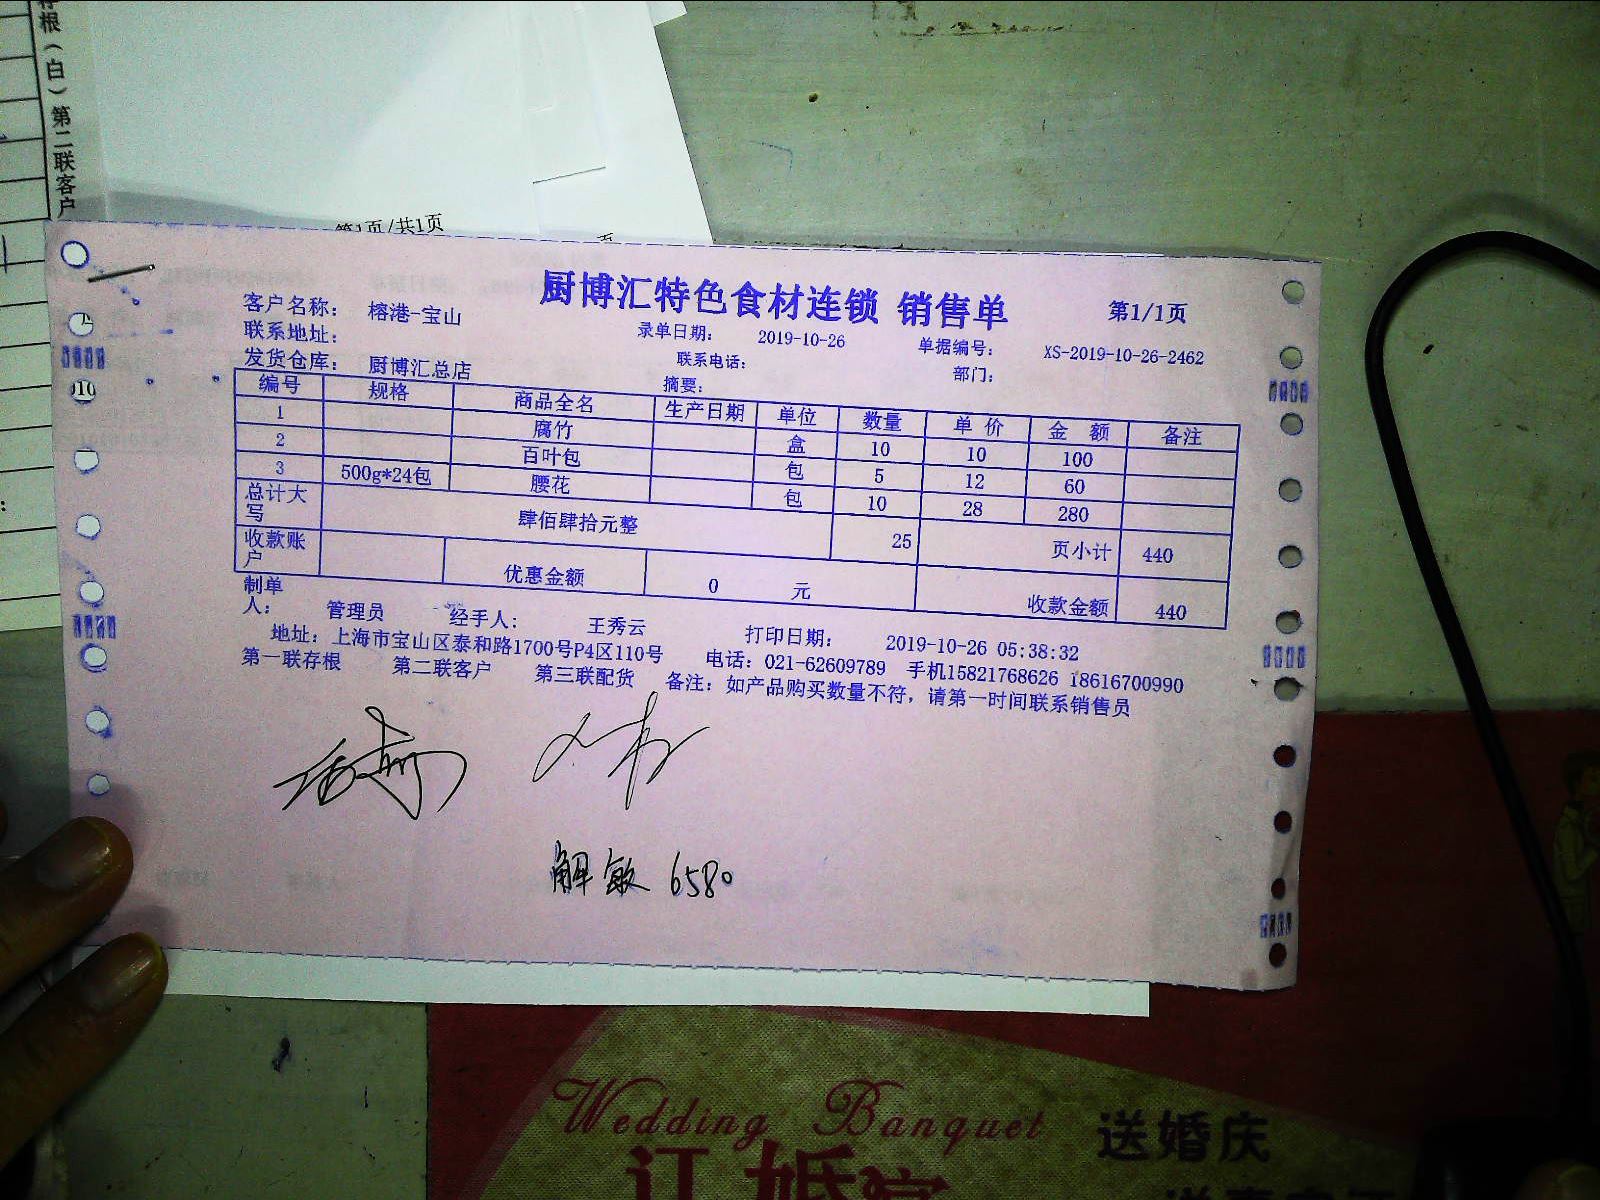 存根（白）第二联客户
第1页/共1页
页
厨博汇特色食材连锁 销售单
第1/1页
客户名称： 榕港-宝山
录单日期： 2019-10-26
单据编号： XS-2019-10-26-2462
联系地址：
联系电话：
部门：
发货仓库： 厨博汇总店
摘要：
编号 规格 商品全名 生产日期 单位 数量 单价 金额 备注
1 腐竹 盒 10 10 100
2 百叶包 包 5 12 60
3 500g*24包 腰花 包 10 28 280
总计大写 肆佰肆拾元整 25 页小计 440
收款账户 优惠金额 0 元 收款金额 440
制单人： 管理员 经手人： 王秀云 打印日期： 2019-10-26 05:38:32
地址：上海市宝山区泰和路1700号P4区110号 电话：021-62609789 手机15821768626 18616700990
第一联存根 第二联客户 第三联配货 备注：如产品购买数量不符，请第一时间联系销售员
解敏 6580
Wedding Banquet
送婚庆
订婚宴